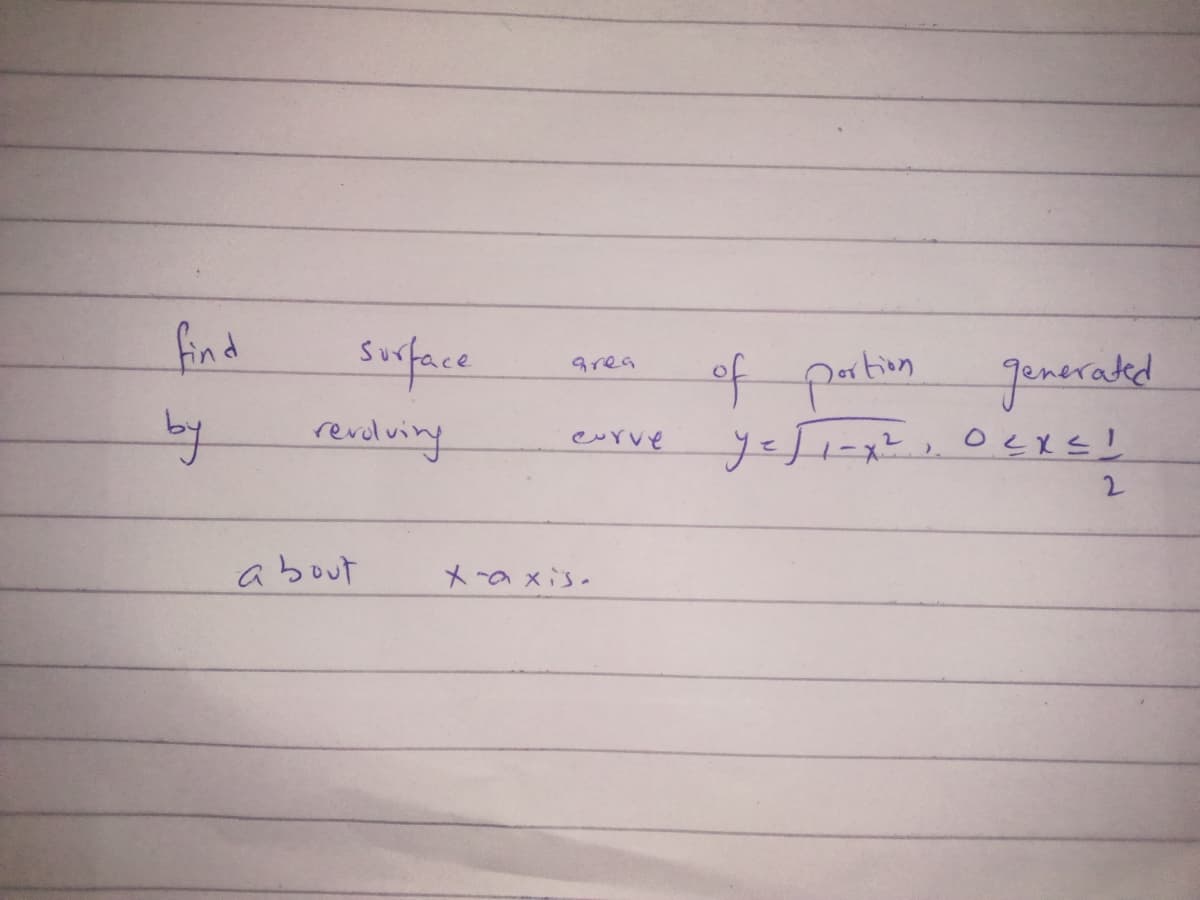 find surface area of portion generated
by revolving curve y=√1-x², 0≤x≤1/2
about x-axis.